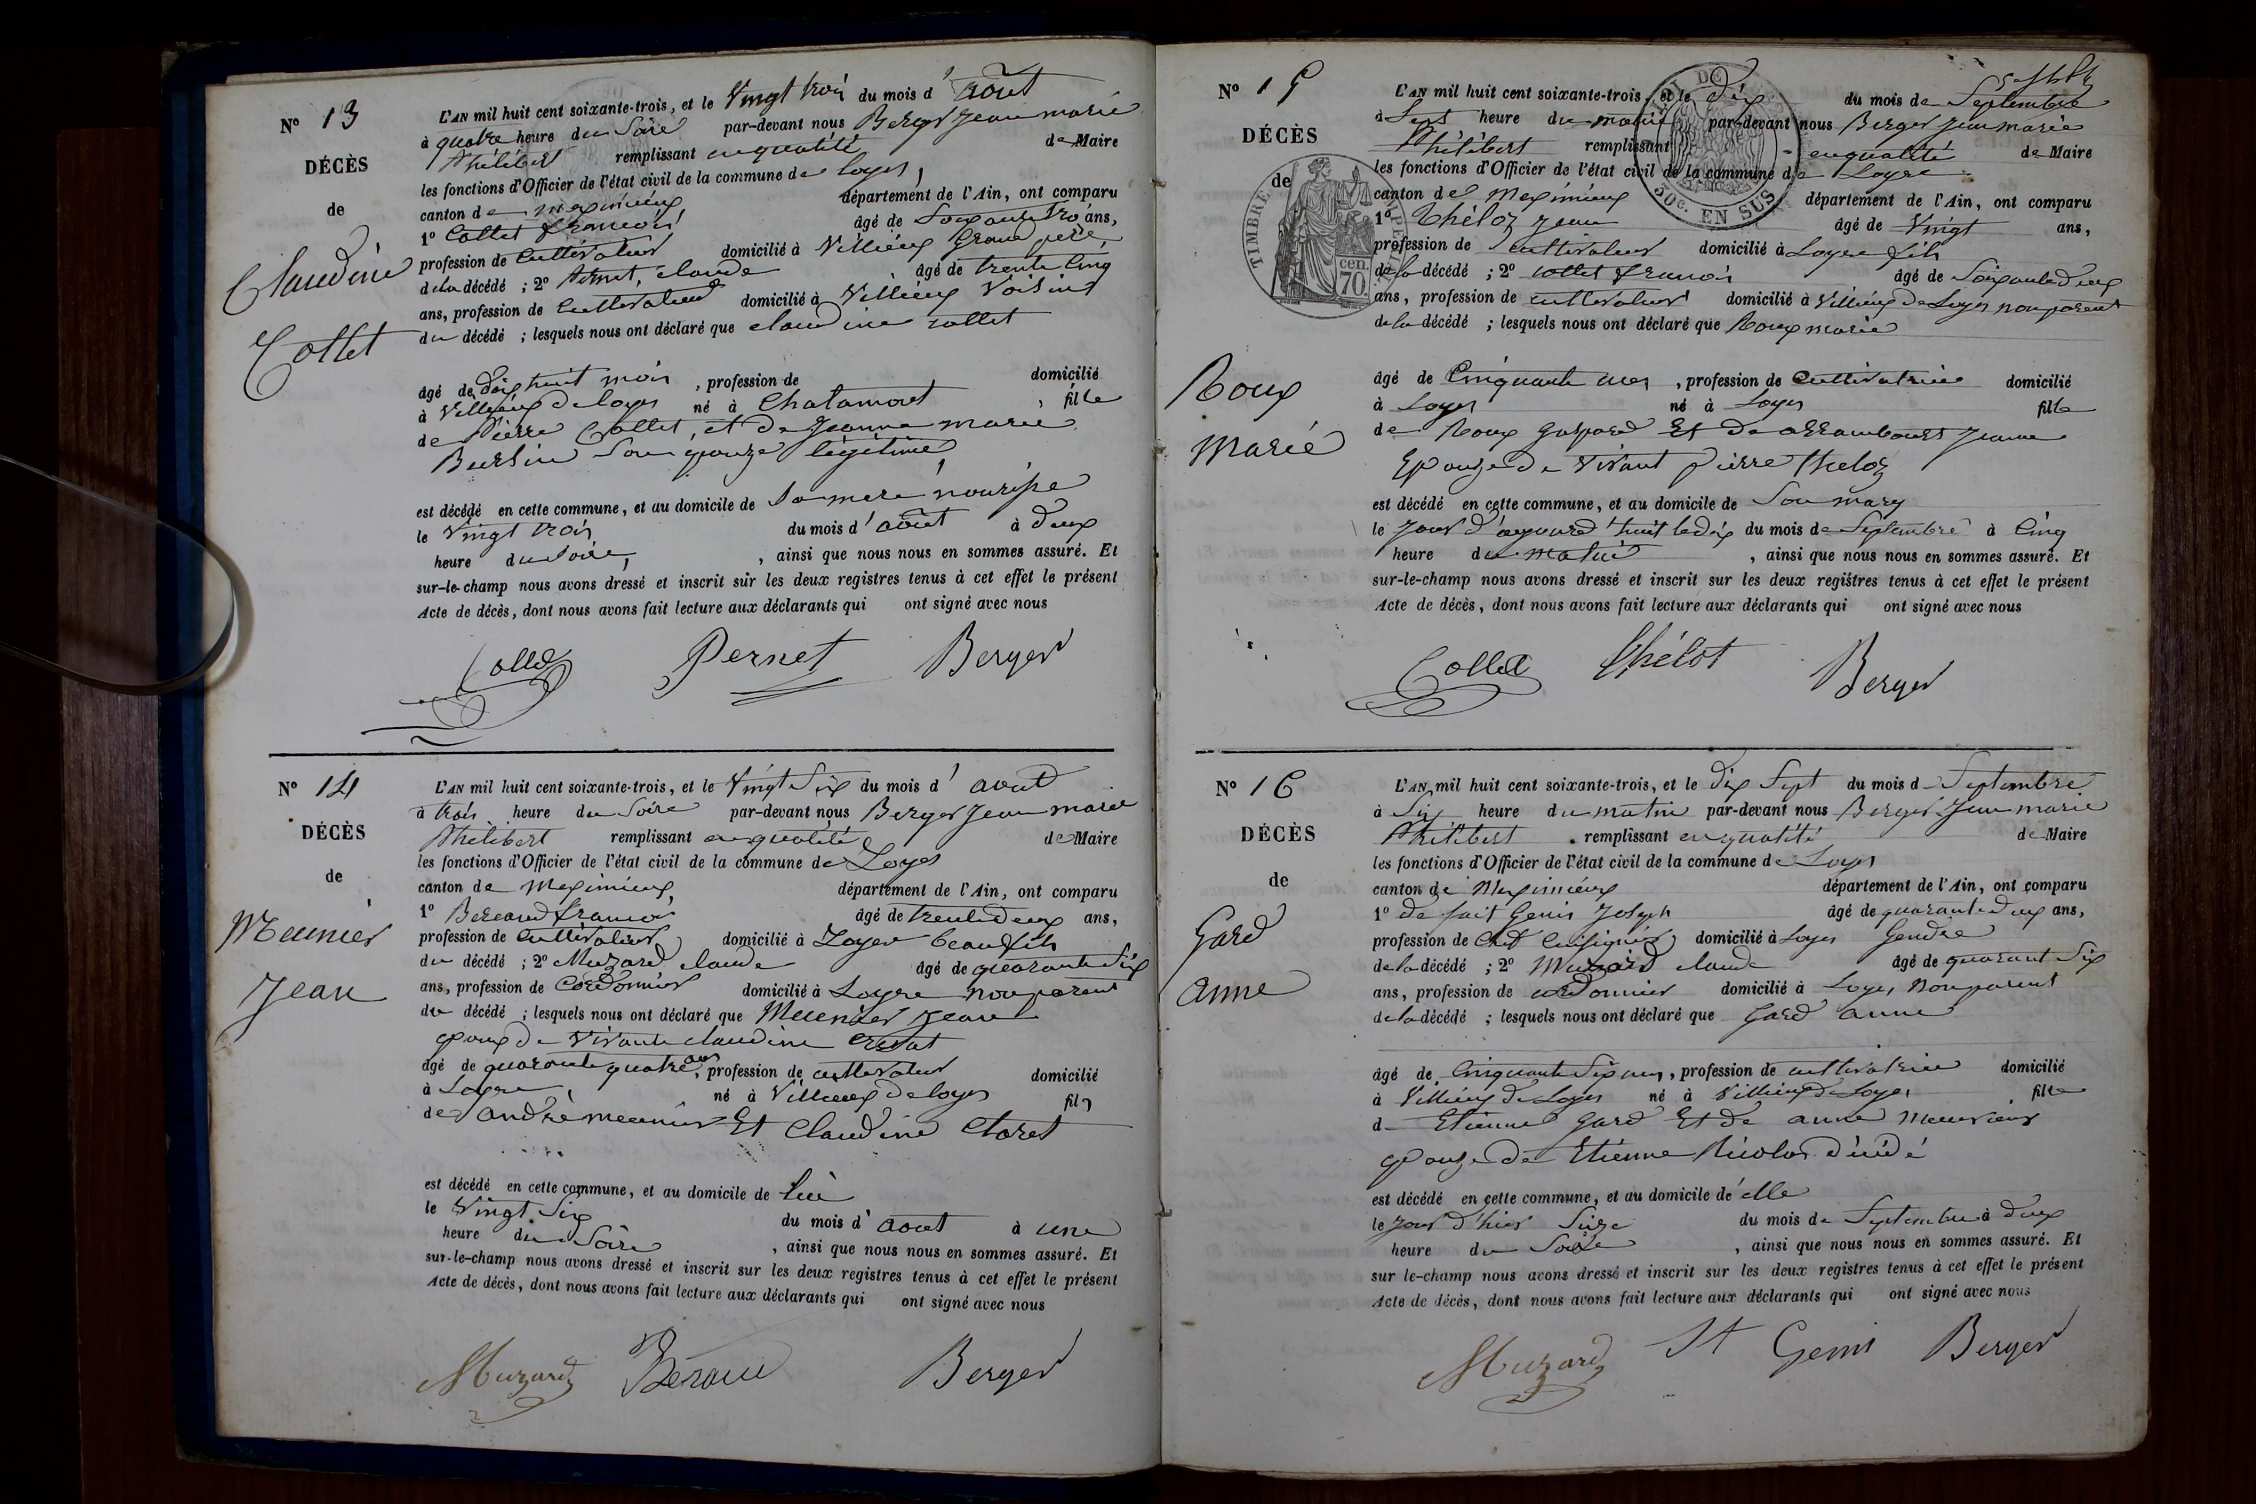 N° 13
DÉCÈS
de
Claudine
Collet
L'AN mil huit cent soixante-trois, et le Vingt trois du mois d'août
à quatre heure du Soire par-devant nous Berger Jean marie
Philibert remplissant en qualité de Maire
les fonctions d'Officier de l'état civil de la commune de Loyes,
canton de meximieux département de l'Ain, ont comparu
1° Collet François âgé de Soixante trois ans,
profession de Cultivateur domicilié à Villieux Grand père
de la décédé ; 2° Pernet, claude âgé de trente Cinq
ans, profession de Cultivateur domicilié à Villieux Voisin
du décédé ; lesquels nous ont déclaré que claudine collet
âgé de dix huit mois, profession de domicilié
à Villieux de loyes né à Chatamont, fille
de Pierre Collet, et de Jeanne marie
Son épouze légitime
est décédé en cette commune, et au domicile de Sa mere nourisse
le Vingt trois du mois d'août à deux
heure du Soire, , ainsi que nous nous en sommes assuré. Et
sur-le-champ nous avons dressé et inscrit sur les deux registres tenus à cet effet le présent
Acte de décès, dont nous avons fait lecture aux déclarants qui ont signé avec nous
Collet Pernet Berger
N° 14
DÉCÈS
de
Meunier
Jean
L'AN mil huit cent soixante-trois, et le Vingt Six du mois d'aout
à trois heure du Soire par-devant nous Berger Jean marie
Philibert remplissant en qualité de Maire
les fonctions d'Officier de l'état civil de la commune de Loyes
canton de meximieux, département de l'Ain, ont comparu
1° Beraud François âgé de trente deux ans,
profession de Cultivateur domicilié à Loyes beaufils
du décédé ; 2° Muzard claude âgé de quarante Six
ans, profession de Cordonnier domicilié à Loyes non parent
du décédé ; lesquels nous ont déclaré que Meunier Jean
epoux de Vivante claudine
âgé de quarante quatre ans, profession de cultivateur domicilié
à Loyes né à Villieux de loyes fils
de andré meunier Et Claudine Claret
est décédé en cette commune, et au domicile de lui
le Vingt Six du mois d'aout à une
heure du Soire , ainsi que nous nous en sommes assuré. Et
sur-le-champ nous avons dressé et inscrit sur les deux registres tenus à cet effet le présent
Acte de décès, dont nous avons fait lecture aux déclarants qui ont signé avec nous
Muzard Béraud Berger
TIMBRE IMPÉRIAL
70 cen.
30c. EN SUS
N° 15
DÉCÈS
de
Roux
Marie
L'AN mil huit cent soixante-trois, et le dix du mois de Septembre
à Sept heure du matin par-devant nous Berger Jean marie
Philibert remplissant en qualité de Maire
les fonctions d'Officier de l'état civil de la commune de Loyes
canton de Meximieux département de l'Ain, ont comparu
1° Théloz Jean âgé de Vingt ans,
profession de cultivateur domicilié à Loyes fils
de la décédé ; 2° collet François âgé de Soixante deux
ans, profession de cultivateur domicilié à Villieux de Loyes non parent
de la décédé ; lesquels nous ont déclaré que Roux marie
âgé de Cinquante ans, profession de Cultivatrice domicilié
à Loyes né à Loyes fille
de Roux Gaspard Et de Jeanne
Epouze de Vivant Pierre theloz
est décédé en cette commune, et au domicile de Son mary
le Jour d'aujourd'huit le dix du mois de Septembre à Cinq
heure du matin , ainsi que nous nous en sommes assuré. Et
sur-le-champ nous avons dressé et inscrit sur les deux registres tenus à cet effet le présent
Acte de décès, dont nous avons fait lecture aux déclarants qui ont signé avec nous
Collet Thélot Berger
N° 16
DÉCÈS
de
Gard
Anne
L'AN mil huit cent soixante-trois, et le dix Sept du mois de Septembre
à Six heure du matin par-devant nous Berger Jean marie
Philibert remplissant en qualité de Maire
les fonctions d'Officier de l'état civil de la commune de Loyes
canton de Meximieux département de l'Ain, ont comparu
1° Genis Joseph âgé de quarante deux ans,
profession de Chef Cuisinier domicilié à Loyes Gendre
de la décédé ; 2° Muzard claude âgé de quarant Six
ans, profession de cordonnier domicilié à Loyes Non parent
de la décédé ; lesquels nous ont déclaré que Gard anne
âgé de Cinquante Six ans, profession de cultivatrice domicilié
à Villieux de Loyes né à Villieux de Loyes fille
d Etienne Gard Et de anne
epouze de Etienne Nicolas décédé
est décédé en cette commune, et au domicile de elle
le Jour d'hier Seize du mois de Septembre à deux
heure du Soire , ainsi que nous nous en sommes assuré. Et
sur le-champ nous avons dressé et inscrit sur les deux registres tenus à cet effet le présent
Acte de décès, dont nous avons fait lecture aux déclarants qui ont signé avec nous
Muzard St Genis Berger